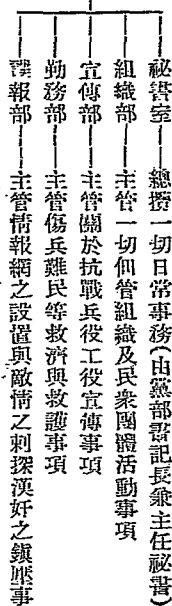 秘書室——總攬一切日常事務(由黨部書記長兼主任秘書)
組織部——主管一切佃管組織及民衆團體活動事項
宣傳部——主管關於抗戰兵役工役宣傳事項
勤務部——主管傷兵難民等救濟與救護事項
諜報部——主管情報網之設置與敵情之刺探漢奸之鎮壓事